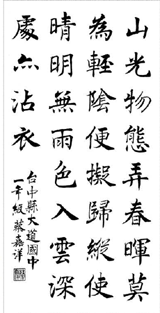 山光物態弄春暉莫
為輕陰便擬歸縱使
晴明無雨色入雲深
處亦沾衣
台中縣大道國中
一年級蔡嘉洋